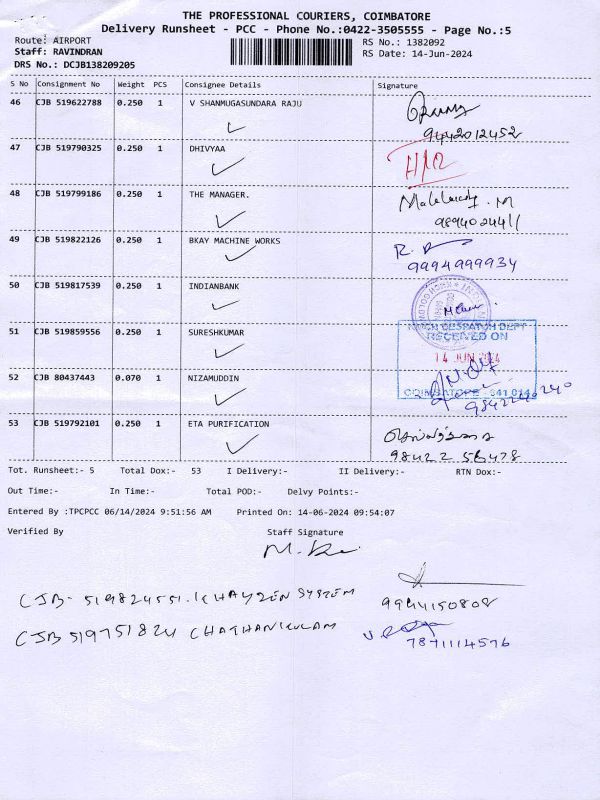 THE PROFESSIONAL COURIERS, COIMBATORE
Delivery Runsheet - PCC - Phone No.:0422-3505555 - Page No.:5
Route: AIRPORT RS No.: 1382092
Staff: RAVINDRAN RS Date: 14-Jun-2024
DRS No.: DCJB138209205
S No Consignment No Weight PCS Consignee Details Signature
46 CJB 519622788 0.250 1 V SHANMUGASUNDARA RAJU
9442012452
47 CJB 519790325 0.250 1 DHIVYAA
48 CJB 519799186 0.250 1 THE MANAGER.
9894024411
49 CJB 519822126 0.250 1 BKAY MACHINE WORKS
9994999934
50 CJB 519817539 0.250 1 INDIANBANK
51 CJB 519859556 0.250 1 SURESHKUMAR
RECEIVED ON
14 JUN 2024
52 CJB 80437443 0.070 1 NIZAMUDDIN
COIMBATORE - 641 014
9842240240
53 CJB 519792101 0.250 1 ETA PURIFICATION
98422 58478
Tot. Runsheet:- 5 Total Dox:- 53 I Delivery:- II Delivery:- RTN Dox:-
Out Time:- In Time:- Total POD:- Delvy Points:-
Entered By :TPCPCC 06/14/2024 9:51:56 AM Printed On: 14-06-2024 09:54:07
Verified By Staff Signature
CJB- 519824551. KHAYZEN SYSTEM
9944150808
CJB 519751824 CHATHANKULAM
7871114576